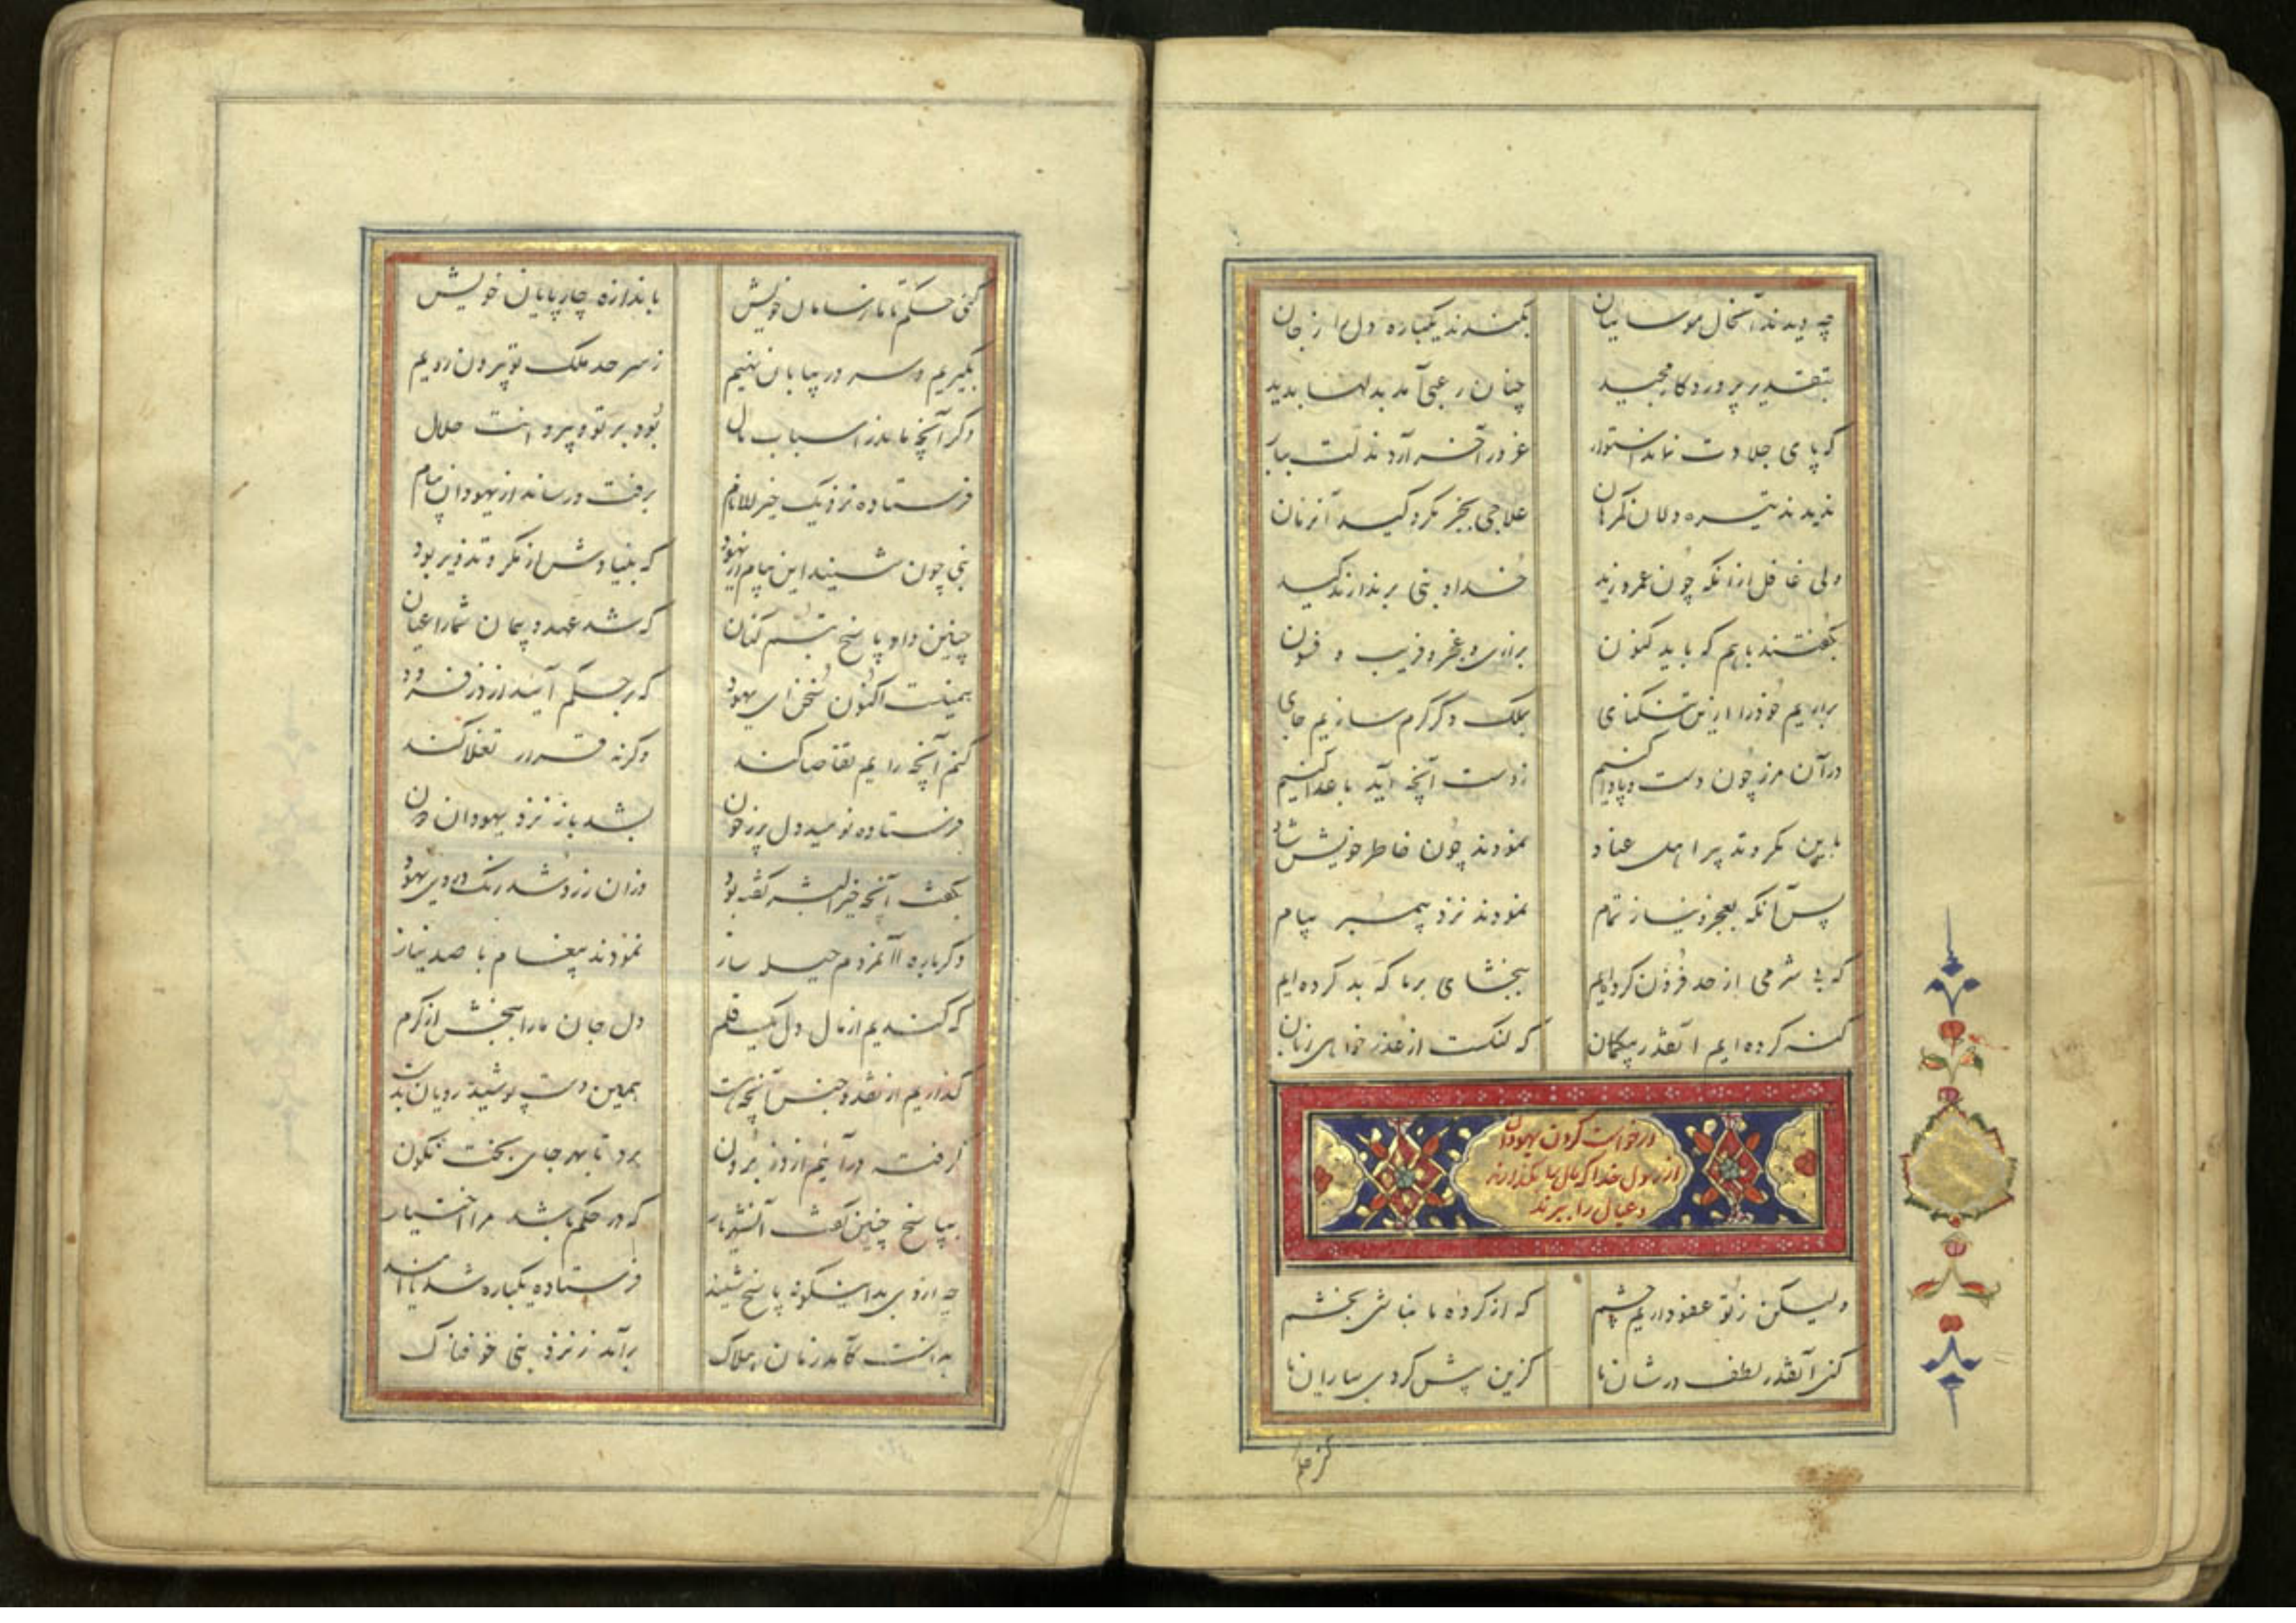 چه دیدند آنحال موسائیان بکندند یکباره دل را ز جان
بتقدیر پروردگار مجید چنان رعبی آمد بدلها پدید
که پای جلادت نماند استوار غرور آخر آرد مذلت ببار
ندیدند تیره دلان گمرهان علاجی بجز مکر و کید آنزمان
ولی غافل از آنکه چون عمرو زید خدا و نبی برندارند کید
بگفتند باهم که باید کنون بزاری و عجز و فریب و فسون
براریم خود را ازین تنگنای بملک دگر گرم سازیم جای
در آن مرز چون دست و پا وا کنیم ز دست آنچه آید با عدا کنیم
باین مکر و تدبیر اهل عناد نمودند چون خاطر خویش شاد
پس آنکه بعجز و نیاز تمام نمودند نزد پیمبر پیام
که بی شرمی از حد فزون کرده‌ایم ببخشای بر ما که بد کرده ایم
گنه کرده ایم آنقدر بیکمان که لنکست از عذر خواهی زبان
درخواست کردن یهودان
از رسول خدا که مال بما بگذارند
و عیال را ببرند
ولیکن ز تو عفو داریم چشم که از کرده ما نباشی بخشم
کنی آنقدر لطف در شان ما کزین پیش کردی بیاران ما
گنی حکم تا ما ز سامان خویش باندازه چارپایان خویش
بگیریم و سر در بیابان نهیم ز سر حد ملک تو بیرون رویم
دگر آنچه ماند ز اسباب مال بود بر تو و پیروانت حلال
فرستاده نزدیک خیر الانام برفت و رساند از یهودان پیام
نبی چون شنید این پیام از یهود که بنیادش از مکر و تذویر بود
چنین داد پاسخ تبسم کنان که شد عهد و پیمان شما را عیان
همینست اکنون سخن ای یهود که بر حکم آیند از دز فرود
کنم آنچه رایم تقاضا کند وگرنه قرار تغلا کند
فرستاده نومید دل پر ز خون بشد باز نزد یهودان دون
بگفت آنچه خیر البشر گفته بود وزان زرد شد رنگ روی یهود
دگرباره آن مردم حیله ساز نمودند پیغام با صد نیاز
که کندیم از مال دل یکقلم دل جان ما را ببخش از کرم
گذاریم از نقد و جنس آنچه هست همین دست پوشیده رویان بدست
گرفته در آئیم از دز برون برد تا بهر جای بخت نگون
بپاسخ چنین گفت آنشهریار که در حکم باشد مرا اختیار
چه از وی بدانسگونه پاسخ شنید فرستاده یکباره شد ناامید
بدانست کآمد زمان هلاک برآمد ز نزد نبی خوفناک